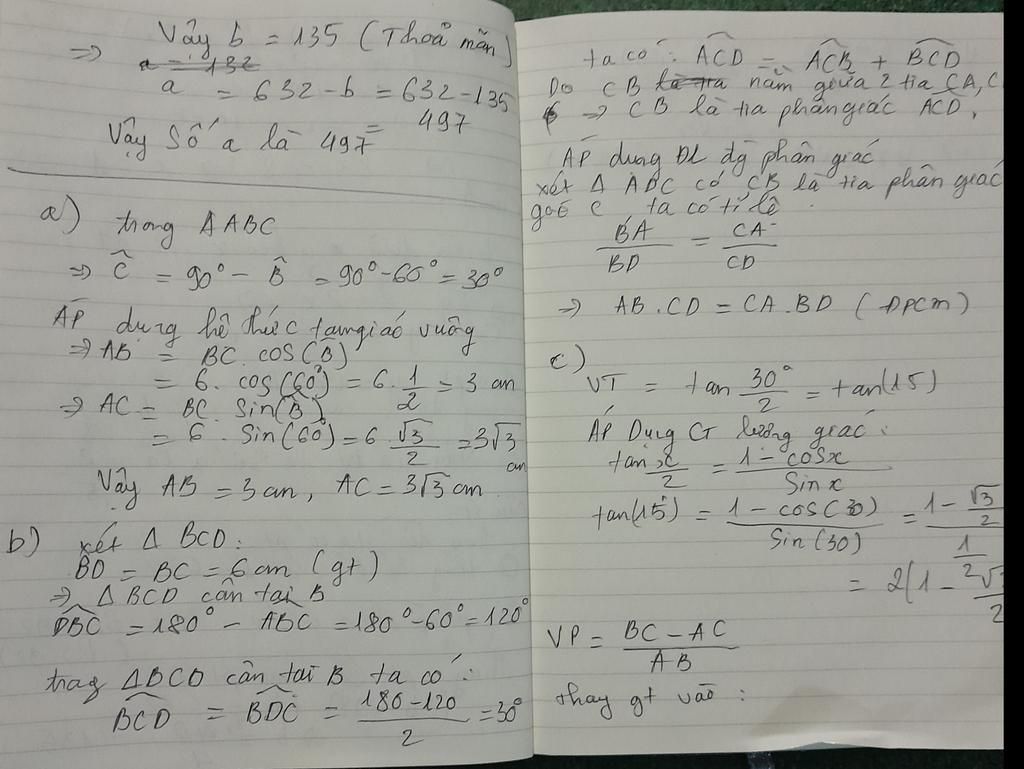 => Vậy b = 135 (Thoả mãn)
a = 132
a = 632 - b = 632 - 135
= 497
Vậy Số a là 497
a) trong Δ ABC
=> Ĉ = 90° - B̂ = 90° - 60° = 30°
ÁP dụng hệ thức tam giác vuông
=> AB = BC . cos(B̂)
= 6 . cos(60°) = 6 . 1/2 = 3 cm
=> AC = BC . Sin(B̂)
= 6 . Sin(60°) = 6 √3/2 = 3√3 cm
Vậy AB = 3 cm, AC = 3√3 cm
b) xét Δ BCD:
BD = BC = 6 cm (gt)
=> Δ BCD cân tại B
DBC = 180° - ABC = 180° - 60° = 120°
trong ΔBCD cân tại B ta có:
BCD = BDC = (180 - 120)/2 = 30°
ta có: ACD = ACB + BCD
Do CB là tia nằm giữa 2 tia CA, C
=> CB là tia phân giác ACD,
ÁP dụng ĐL đg phân giác
xét Δ ADC có CB là tia phân giác
góc C ta có tỉ lệ
BA/BD = CA/CD
=> AB . CD = CA . BD (ĐPCM)
c)
VT = tan 30°/2 = tan(15)
ÁP Dụng CT lượng giác:
tan x/2 = (1 - cosx)/Sin x
tan(15°) = (1 - cos(30))/Sin(30) = (1 - √3/2)/(1/2)
= 2(1 - √3/2
VP = (BC - AC)/AB
thay gt vào: